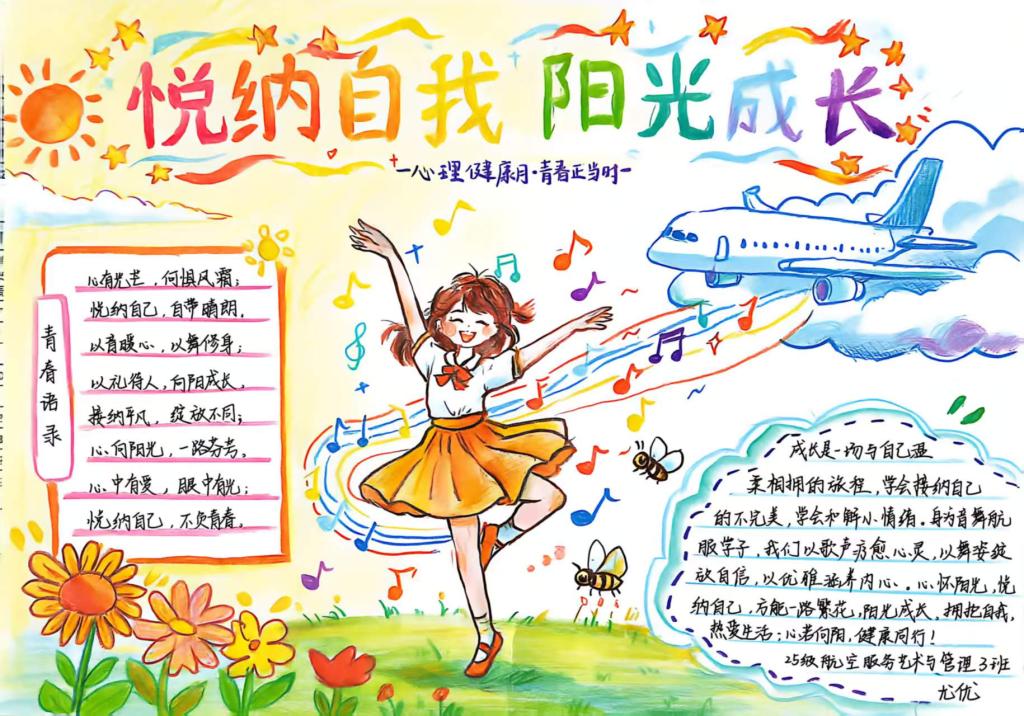 悦纳自我 阳光成长
—心理健康月·青春正当时—
青春语录
心有光芒，何惧风霜；
悦纳自己，自带晴朗。
以音暖心，以舞修身；
以礼待人，向阳成长。
接纳平凡，绽放不同；
心向阳光，一路芬芳。
心中有爱，眼中有光；
悦纳自己，不负青春。
成长是一场与自己温
柔相拥的旅程，学会接纳自己
的不完美，学会和解小情绪。身为音舞航
服学子，我们以歌声疗愈心灵，以舞姿绽
放自信，以优雅涵养内心。心怀阳光，悦
纳自己，方能一路繁花，阳光成长。拥抱自我，
热爱生活；心若向阳，健康同行！
25级航空服务艺术与管理3班
尤优